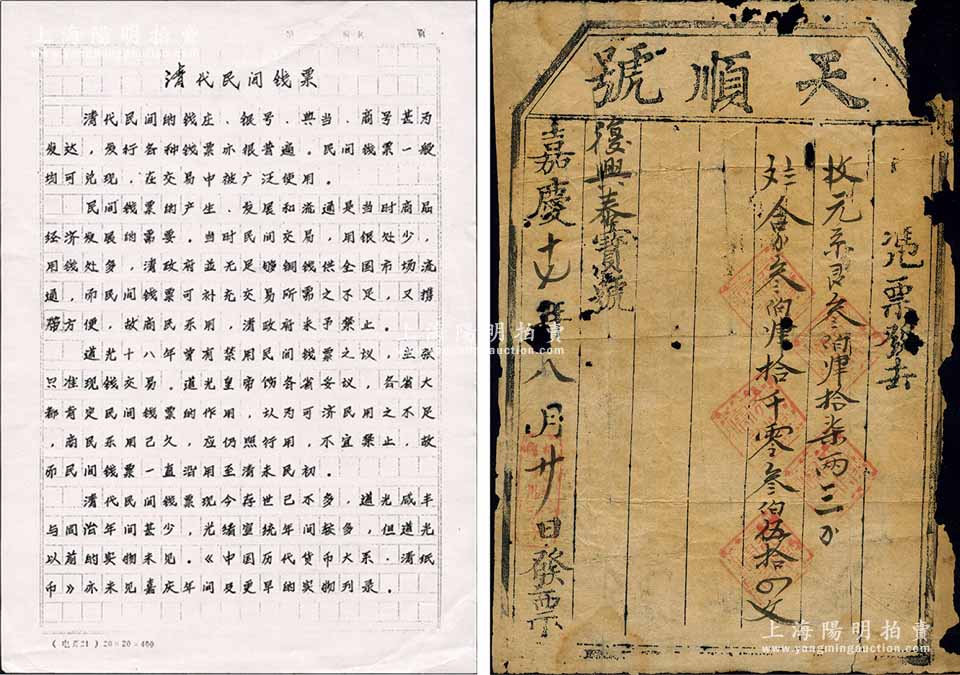 上海陽明拍賣
www.yangmingauction.com
第 页
清代民间钱票
清代民间的钱庄、银号、典当、商号甚为
发达，发行各种钱票亦很普遍。民间钱票一般
均可兑现，在交易中被广泛使用。
民间钱票的产生、发展和流通是当时商品
经济发展的需要。当时民间交易，用银处少，
用钱处多，清政府並无足够铜钱供全国市场流
通，而民间钱票可补充交易所需之不足，又携
带方便，故商民乐用，清政府未予禁止。
道光十八年曾有禁用民间钱票之议，主张
只准现钱交易。道光皇帝饬各省妥议，各省大
都肯定民间钱票的作用，认为可济民用之不足
，商民乐用已久，应仍照行用，不宜禁止，故
而民间钱票一直沿用至清末民初。
清代民间钱票现今存世已不多，道光咸丰
与同治年间甚少，光绪宣统年间较多，但道光
以前的实物未见。《中国历代货币大系·清纸
币》亦未见嘉庆年间及更早的实物列录。
20×20=400
天順號
憑票發去
收元系艮叁陌肆拾柒兩三
合 叁陌肆拾千零叁佰伍拾 文
復興泰寶號
嘉慶十七年八月廿八日發票
上海陽明拍賣
www.yangmingauction.com
上海陽明拍賣
www.yangmingauction.com